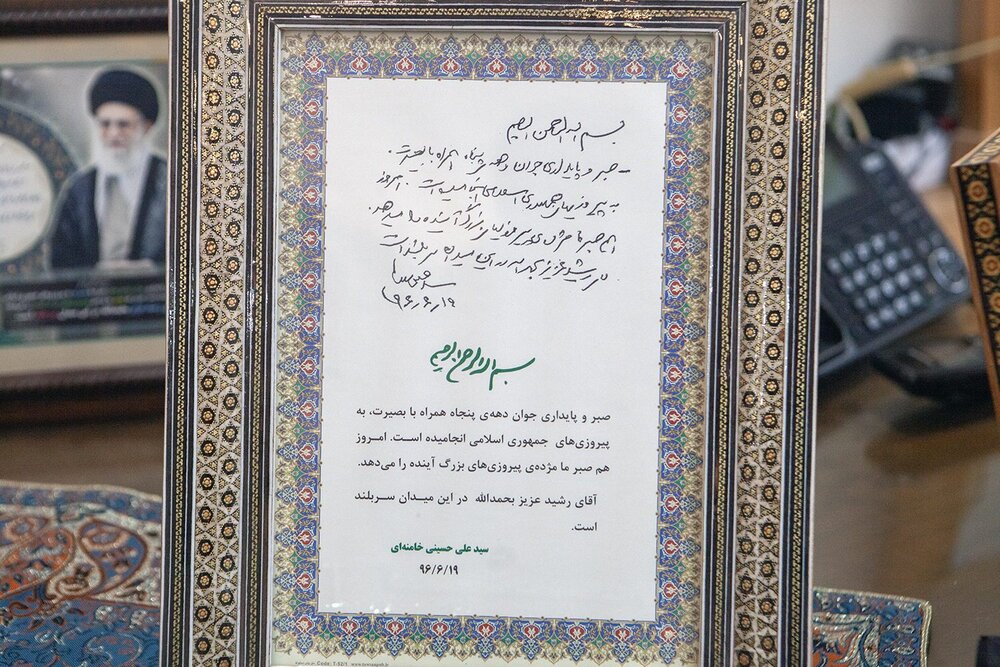 بسم الله الرحمن الرحیم
صبر و پایداری جوان دهه‌ی پنجاه همراه با بصیرت،
به پیروزیهای جمهوری اسلامی انجامیده است. امروز
هم صبر ما مژده‌ی پیروزیهای بزرگ آینده را میدهد.
آقای رشید عزیز بحمدالله در این میدان سربلند است
۹۶/۶/۱۹
بسم الله الرحمن الرحیم
صبر و پایداری جوان دهه‌ی پنجاه همراه با بصیرت، به
پیروزی‌های جمهوری اسلامی انجامیده است. امروز
هم صبر ما مژده‌ی پیروزی‌های بزرگ آینده را می‌دهد.
آقای رشید عزیز بحمدالله در این میدان سربلند
است.
سید علی حسینی خامنه‌ای
۹۶/۶/۱۹
Code: T-52/1